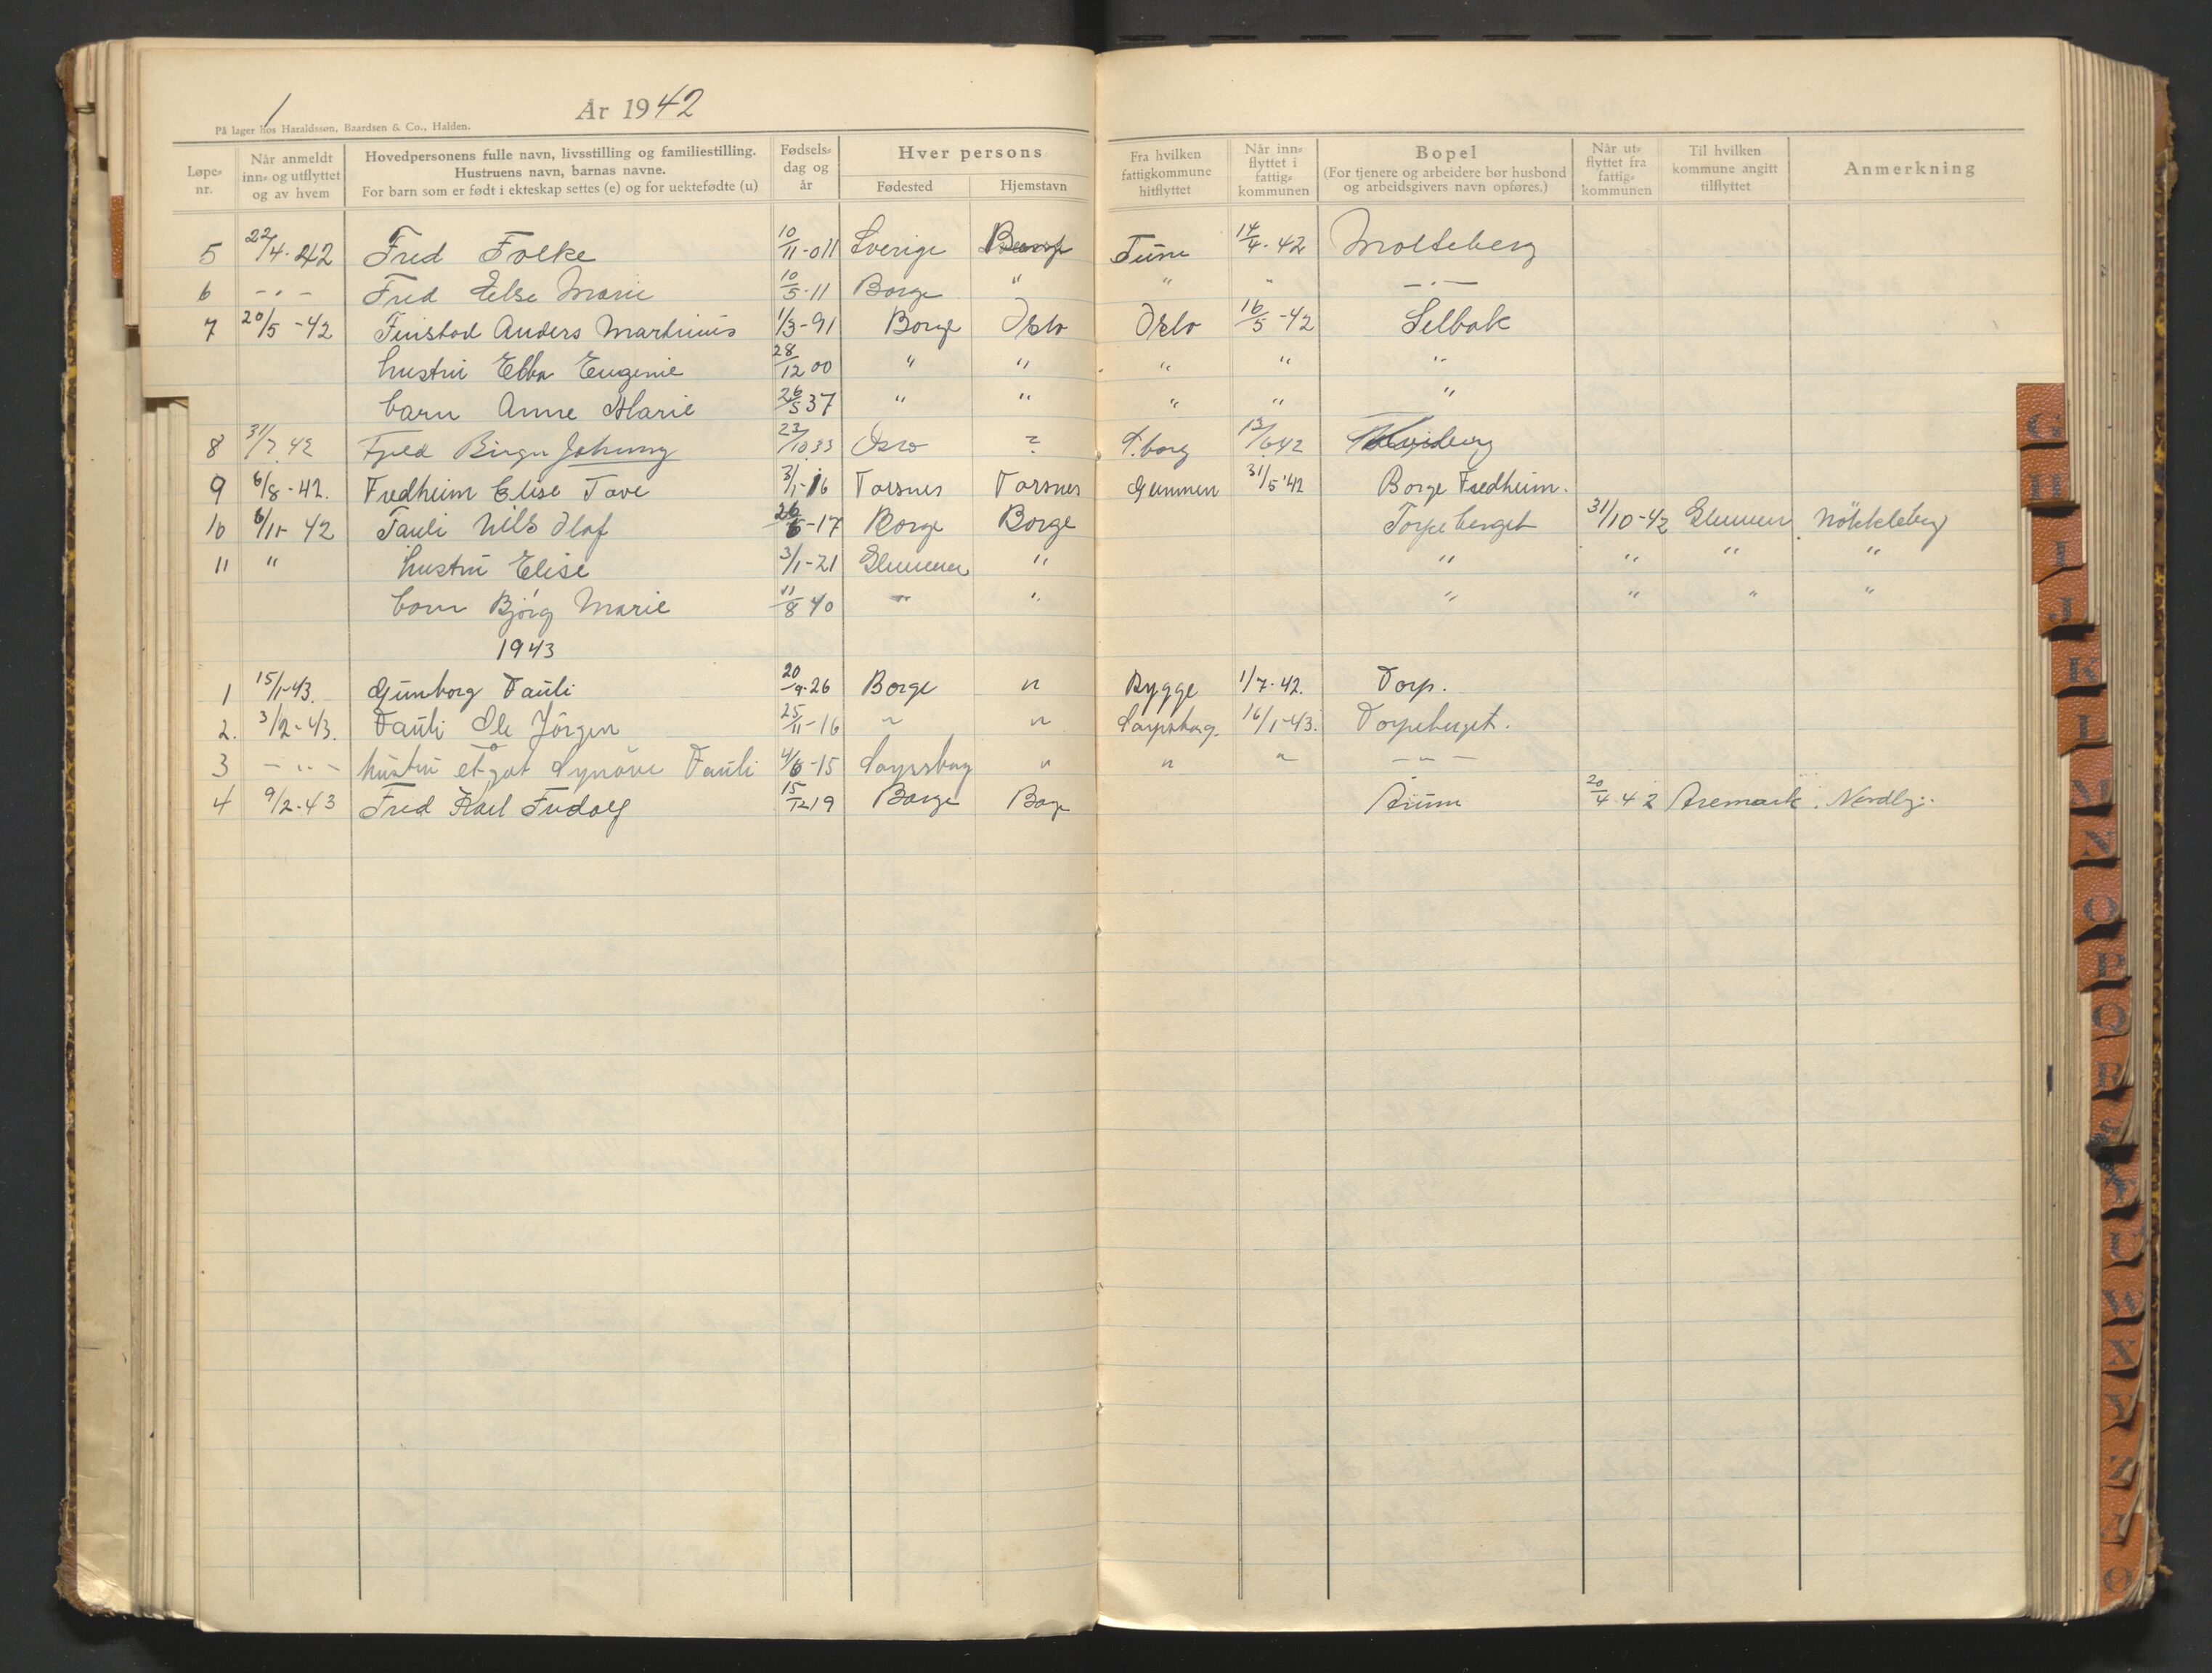 1
År 1942
På lager hos Haraldssøn, Baardsen & Co., Halden.
Løpe-nr. Når anmeldt inn- og utflyttet og av hvem Hovedpersonens fulle navn, livsstilling og familiestilling. Hustruens navn, barnas navne. For barn som er født i ekteskap settes (e) og for uektefødte (u) Fødsels-dag og år Hver persons Fødested Hjemstavn Fra hvilken fattigkommune hitflyttet Når inn-flyttet i fattig-kommunen Bopel (For tjenere og arbeidere bør husbond og arbeidsgivers navn opføres.) Når ut-flyttet fra fattig-kommunen Til hvilken kommune angitt tilflyttet Anmerkning
5 22/4-42 Fred Folke 10/11-011 Sverige Borge Tune 14/4-42 Molteberg
6 -"- Fred Else Marie 10/5-11 Borge " " " -"-
7 20/5-42 Finstad Anders Martinius 1/3-91 Borge Oslo Oslo 16/5-42 Selbak
hustru Ebba Eugenie 28/12 00 " " " " "
barn Anne Marie 26/5 37 " " " " "
8 31/7 42 Fjeld Birger Johnny 23/10 33 Oslo ? S.borg 13/6 42
9 6/8-42. Fredheim Elise Tove 3/1-16 Torsnes Torsnes Glemmen 31/5 '42 Borge Fredheim.
10 6/11-42 Fauli Nils Olaf 26/6-17 Borge Borge Torpeberget 31/10-42 Glemmen Nökkleby
11 " hustru Elise 3/1-21 Glemmen " " " " "
barn Bjørg Marie 11/8 40 " " " " " "
1943
1 15/1-43. Gunborg Fauli 20/9-26 Borge " Rygge 1/7-42. Torp.
2. 3/2-43. Fauli Ole Jörgen 25/11-16 " " Sarpsborg. 16/1-43. Torpeberget.
3 -"- hustru Synöve Fauli 4/6-15 Sarpsborg " " " -"-
4 9/2-43 Fred Karl Fridolf 15/12 19 Borge Borge Årum 20/4 42 Aremark. Nordby.
J
K
L
N
O
P
Q
R
U
W
X
Y
Z
Ø